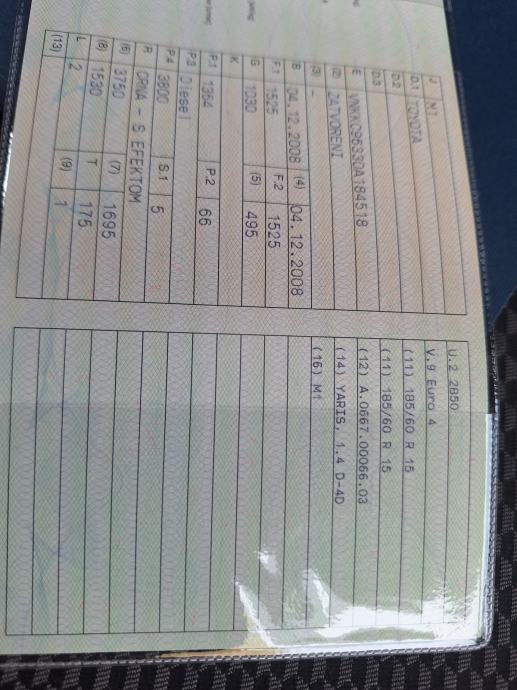 J M1
D.1 TOYOTA
D.2
D.3
E VNKKC96330A184518
(2) ZATVORENI
(3) -
B 04.12.2008 (4) 04.12.2008
F.1 1525 F.2 1525
G 1030 (5) 495
K
P.1 1364 P.2 66
P.3 Diesel
P.4 3800 S.1 5
R CRNA - S EFEKTOM
(6) 3750 (7) 1695
(8) 1530 T 175
L 2 (9) 1
(13)
U.2 2850
V.9 Euro 4
(11) 185/60 R 15
(11) 185/60 R 15
(12) A.0667.00066.03
(14) YARIS, 1.4 D-4D
(16) M1